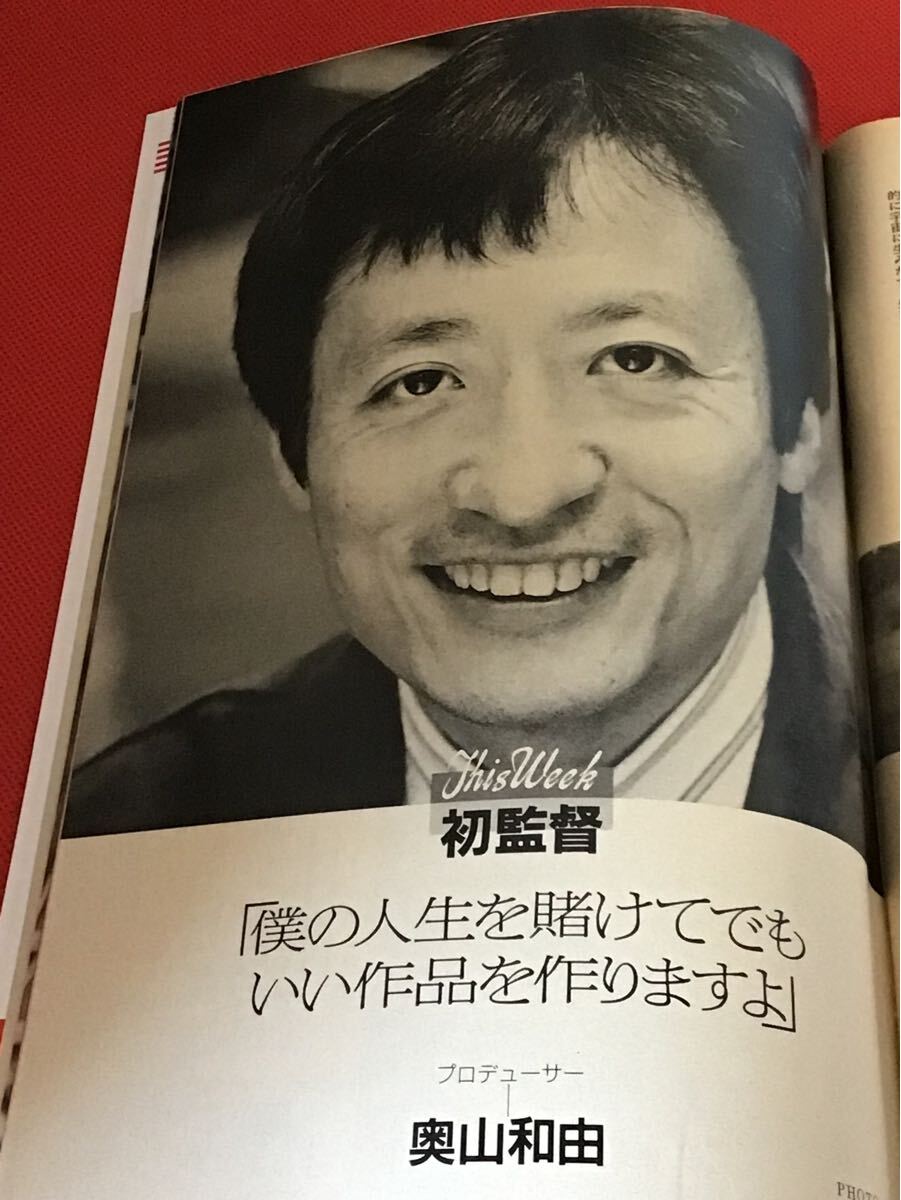 This Week
初監督
「僕の人生を賭けてでも
いい作品を作りますよ」
プロデューサー
奥山和由
PHOTO